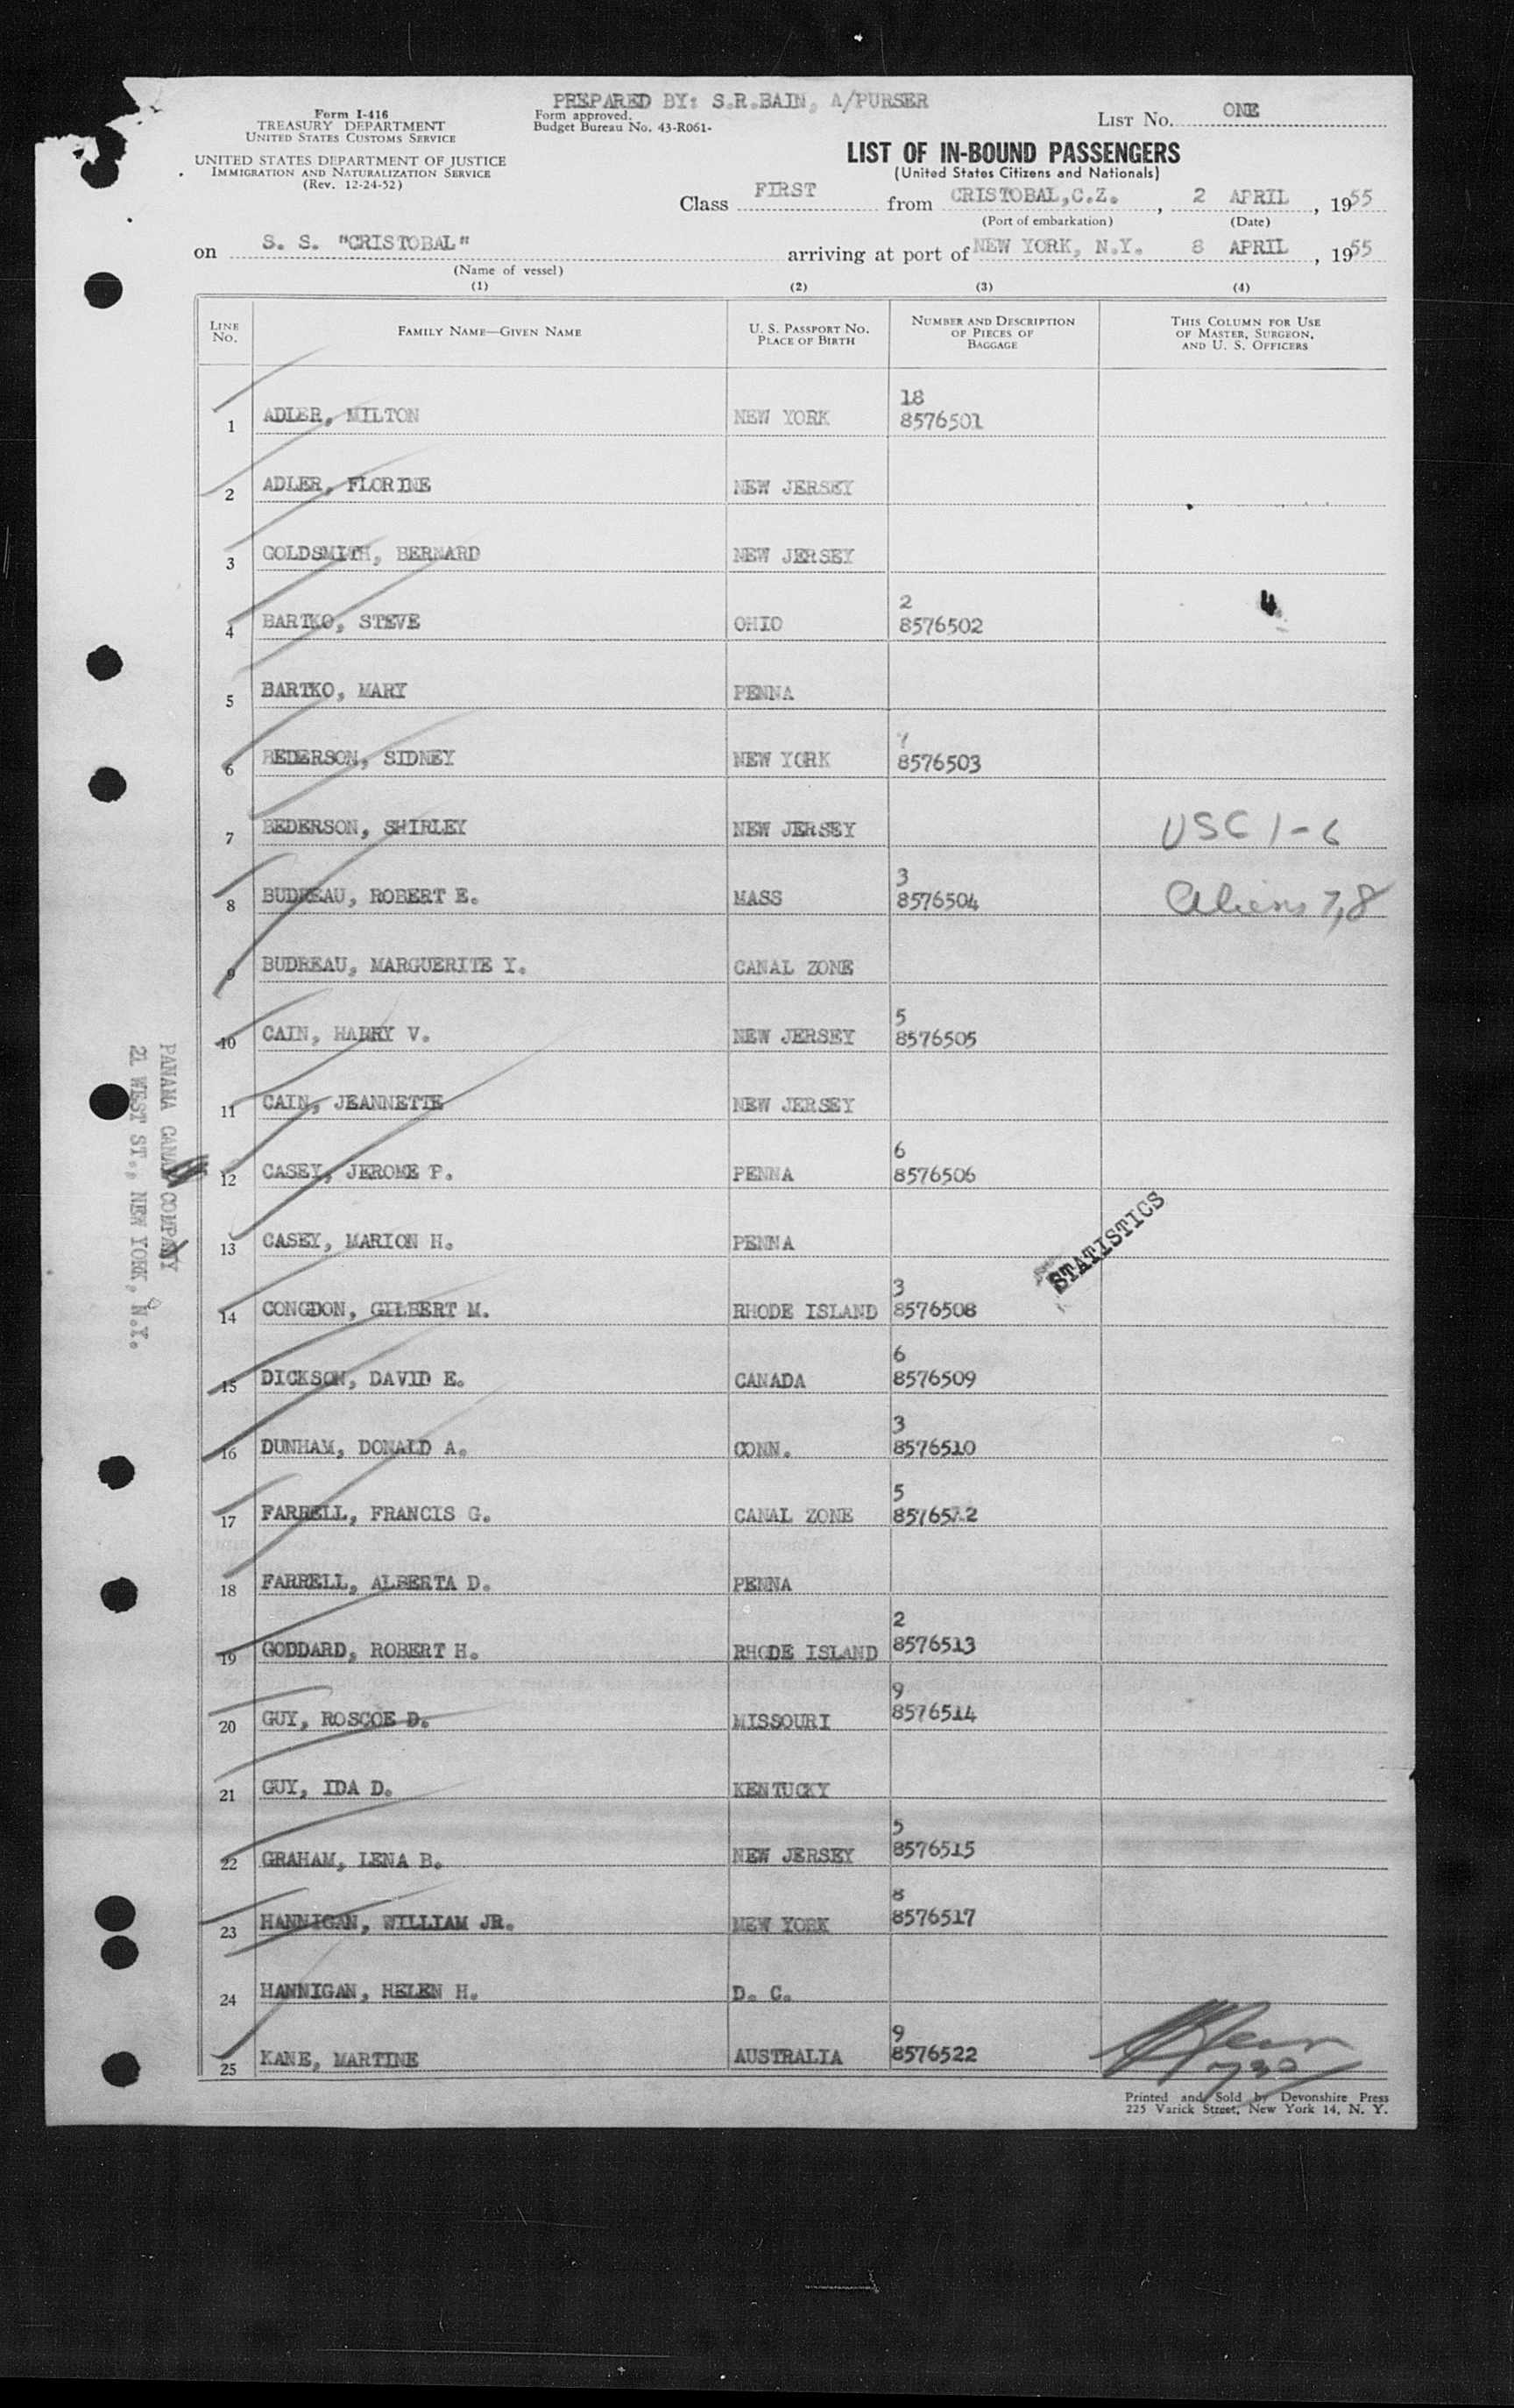 PREPARED BY: S.R.BAIN, A/PURSER
Form I-416
TREASURY DEPARTMENT
UNITED STATES CUSTOMS SERVICE
UNITED STATES DEPARTMENT OF JUSTICE
IMMIGRATION AND NATURALIZATION SERVICE
(Rev. 12-24-52)
Form approved.
Budget Bureau No. 43-R061-
LIST No. ONE
LIST OF IN-BOUND PASSENGERS
(United States Citizens and Nationals)
Class FIRST from CRISTOBAL,C.Z., 2 APRIL, 1955
(Port of embarkation) (Date)
on S. S. "CRISTOBAL" arriving at port of NEW YORK, N.Y. 8 APRIL, 1955
(Name of vessel)
(1) (2) (3) (4)
LINE No. FAMILY NAME—GIVEN NAME U. S. PASSPORT NO. PLACE OF BIRTH NUMBER AND DESCRIPTION OF PIECES OF BAGGAGE THIS COLUMN FOR USE OF MASTER, SURGEON, AND U. S. OFFICERS
18
1 ADLER, MILTON NEW YORK 8576501
2 ADLER, FLORINE NEW JERSEY
3 GOLDSMITH, BERNARD NEW JERSEY
2
4 BARTKO, STEVE OHIO 8576502 4
5 BARTKO, MARY PENNA
6 BEDERSON, SIDNEY NEW YORK 8576503
7 BEDERSON, SHIRLEY NEW JERSEY USC 1-6
3
8 BUDREAU, ROBERT E. MASS 8576504 Aliens 7,8
9 BUDREAU, MARGUERITE Y. CANAL ZONE
5
10 CAIN, HARRY V. NEW JERSEY 8576505
11 CAIN, JEANNETTE NEW JERSEY
6
12 CASEY, JEROME P. PENNA 8576506
13 CASEY, MARION H. PENNA
STATISTICS
3
14 CONGDON, GILBERT M. RHODE ISLAND 8576508
6
15 DICKSON, DAVID E. CANADA 8576509
3
16 DUNHAM, DONALD A. CONN. 8576510
5
17 FARRELL, FRANCIS G. CANAL ZONE 8576512
18 FARRELL, ALBERTA D. PENNA
2
19 GODDARD, ROBERT H. RHODE ISLAND 8576513
9
20 GUY, ROSCOE D. MISSOURI 8576514
21 GUY, IDA D. KENTUCKY
5
22 GRAHAM, LENA B. NEW JERSEY 8576515
8
23 HANNIGAN, WILLIAM JR. NEW YORK 8576517
24 HANNIGAN, HELEN H. D. C.
9
25 KANE, MARTINE AUSTRALIA 8576522
PANAMA CANAL COMPANY
21 WEST ST., NEW YORK, N.Y.
Printed and Sold by Devonshire Press
225 Varick Street, New York 14, N. Y.